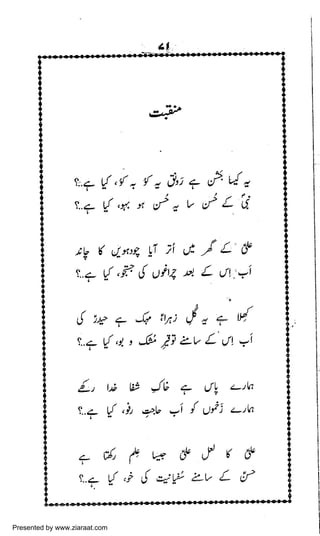 ۷۱
منقبت
یہ کیسا جشن ہے رونق یہ کُو بہ کُو، کیا ہے..؟
نبیؐ کے حُسن سا یہ حُسن ہو بہو، کیا ہے..؟
علیؑ کے گھر میں اُتر آیا چودہویں کا چاند
اب اِس کے بعد چراغوں کی جستجو، کیا ہے..؟
کھلا ہے یہ گُلِ زہراؑ مہک ہے حیدرؑ کی
اب اس کے سامنے توقیرِ مُشک و بو، کیا ہے..؟
ہمارے پاس ہے خاکِ شفا خدا رکھے
ہمارے زخموں کو اب حاجتِ رفو، کیا ہے..؟
علیؑ کا لعل علیؑ جیسا ظرف رکھتا ہے
حسنؑ کے سامنے سُفیانیت کی خو، کیا ہے..؟
Presented by www.ziaraat.com